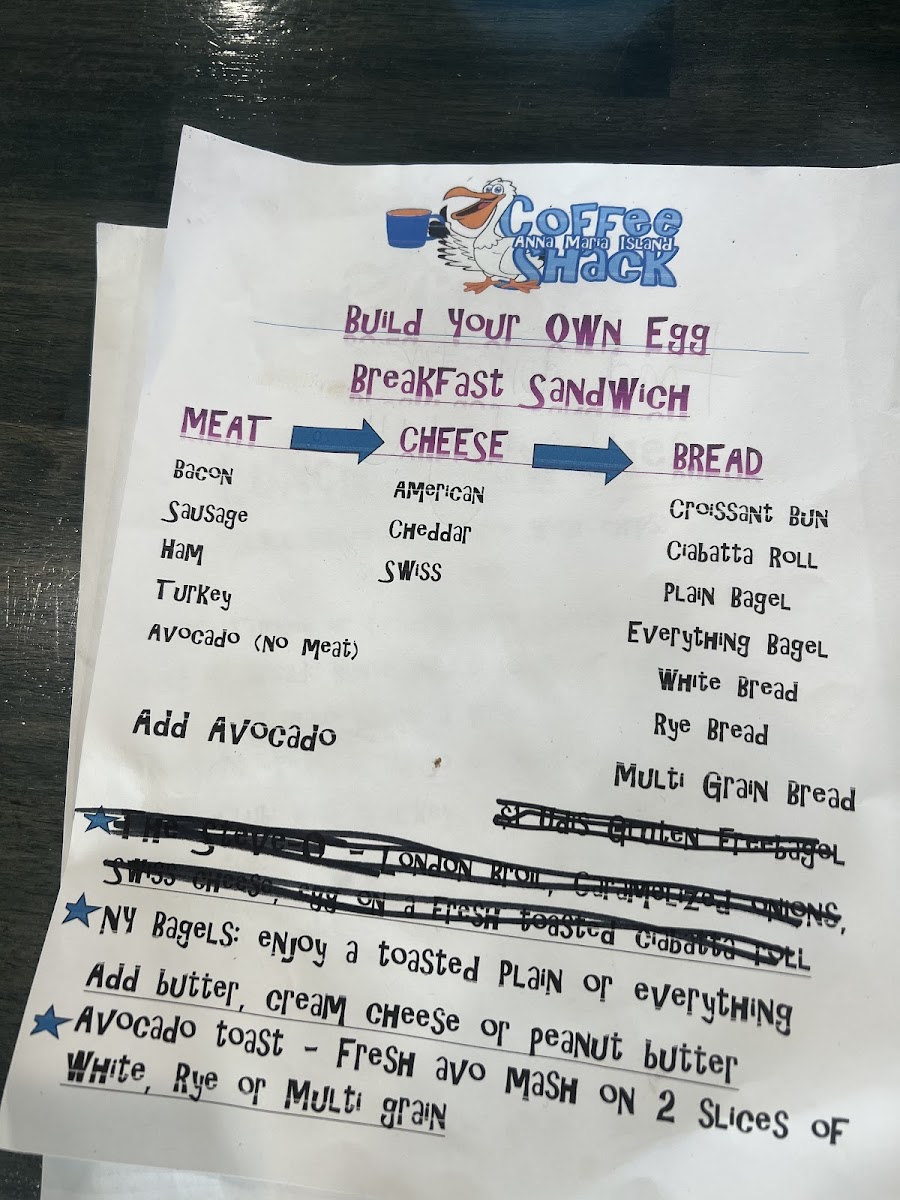 Coffee
Anna Maria Island
Shack
Build Your Own Egg
Breakfast Sandwich
MEAT CHEESE BREAD
Bacon American Croissant Bun
Sausage Cheddar Ciabatta Roll
Ham Swiss Plain Bagel
Turkey Everything Bagel
Avocado (No Meat) White Bread
Rye Bread
Add Avocado
Multi Grain Bread
Gluten Free Bagel
The Steve-O - London Broil, Caramelized onions,
Swiss cheese, egg on a fresh toasted Ciabatta roll
NY Bagels: enjoy a toasted plain or everything
Add butter, cream cheese or peanut butter
Avocado toast - Fresh avo mash on 2 slices of
White, Rye or Multi grain